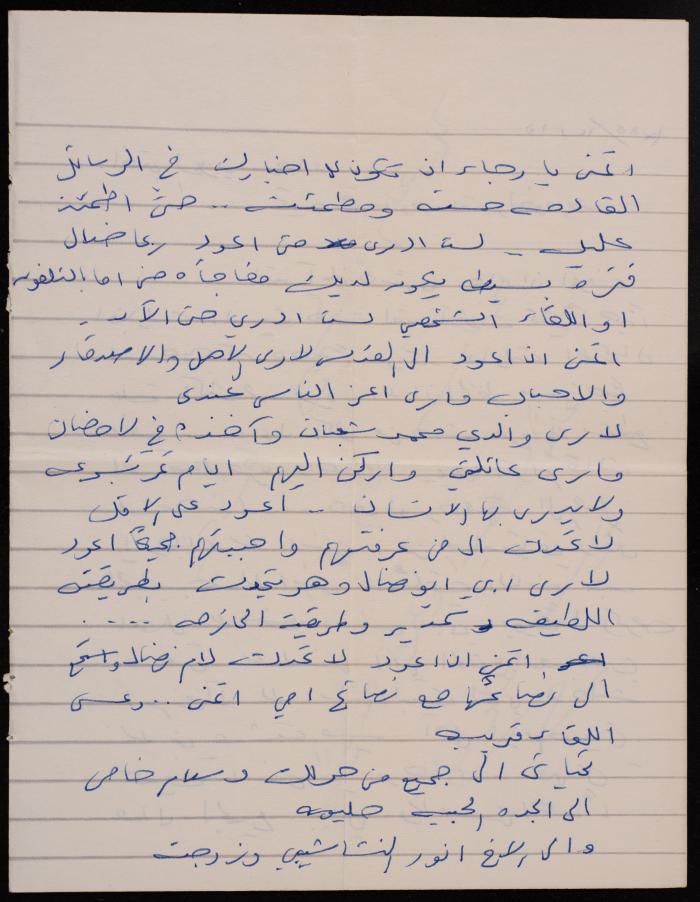 اتمنى يا رجاء ان تكون اخبارك في الرسائل
القادمه حسنه ومطمئنه .. حتى اطمئن
عليك _ لست ادري متى اعود ربما خلال
فترة بسيطه يكون لديك مفاجأه مني اما بالتلفون
او اللقاء الشخصي لست ادري حتى الآن .
اتمنى ان اعود الى القدس لارى الاهل والاصدقاء
والاحباب وارى اعز الناس عندي
لارى والدي محمد شعبان وآخذه في الاحضان
وارى عائلتي واركن اليهم ايام تمر
ولا يدري بها الانسان .. اعود على الاقل
لاتحدث الى من عرفتهم واحببتهم جميعاً اعود
لارى ابي ابو نضال وهو يتحدث بطريقته
اللطيفه كمدير وطريقته الحازمه ....
اتمنى ان اعود لاتحدث لام نضال واستمع
الى نصائحها مع نصائح امي اتمنى .. وعسى
اللقاء قريب
تحياتي الى جميع من حولك وسلام خاص
الى الجده الحبيبه حليمه
والى الاخ انور النشاشيبي وزوجته